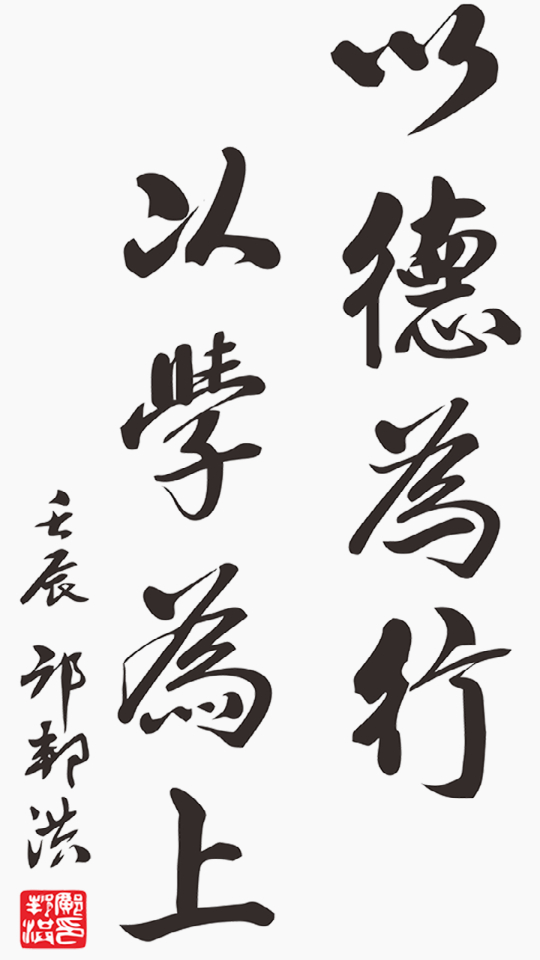 以德為行
以學為上
壬辰 邝邦洪